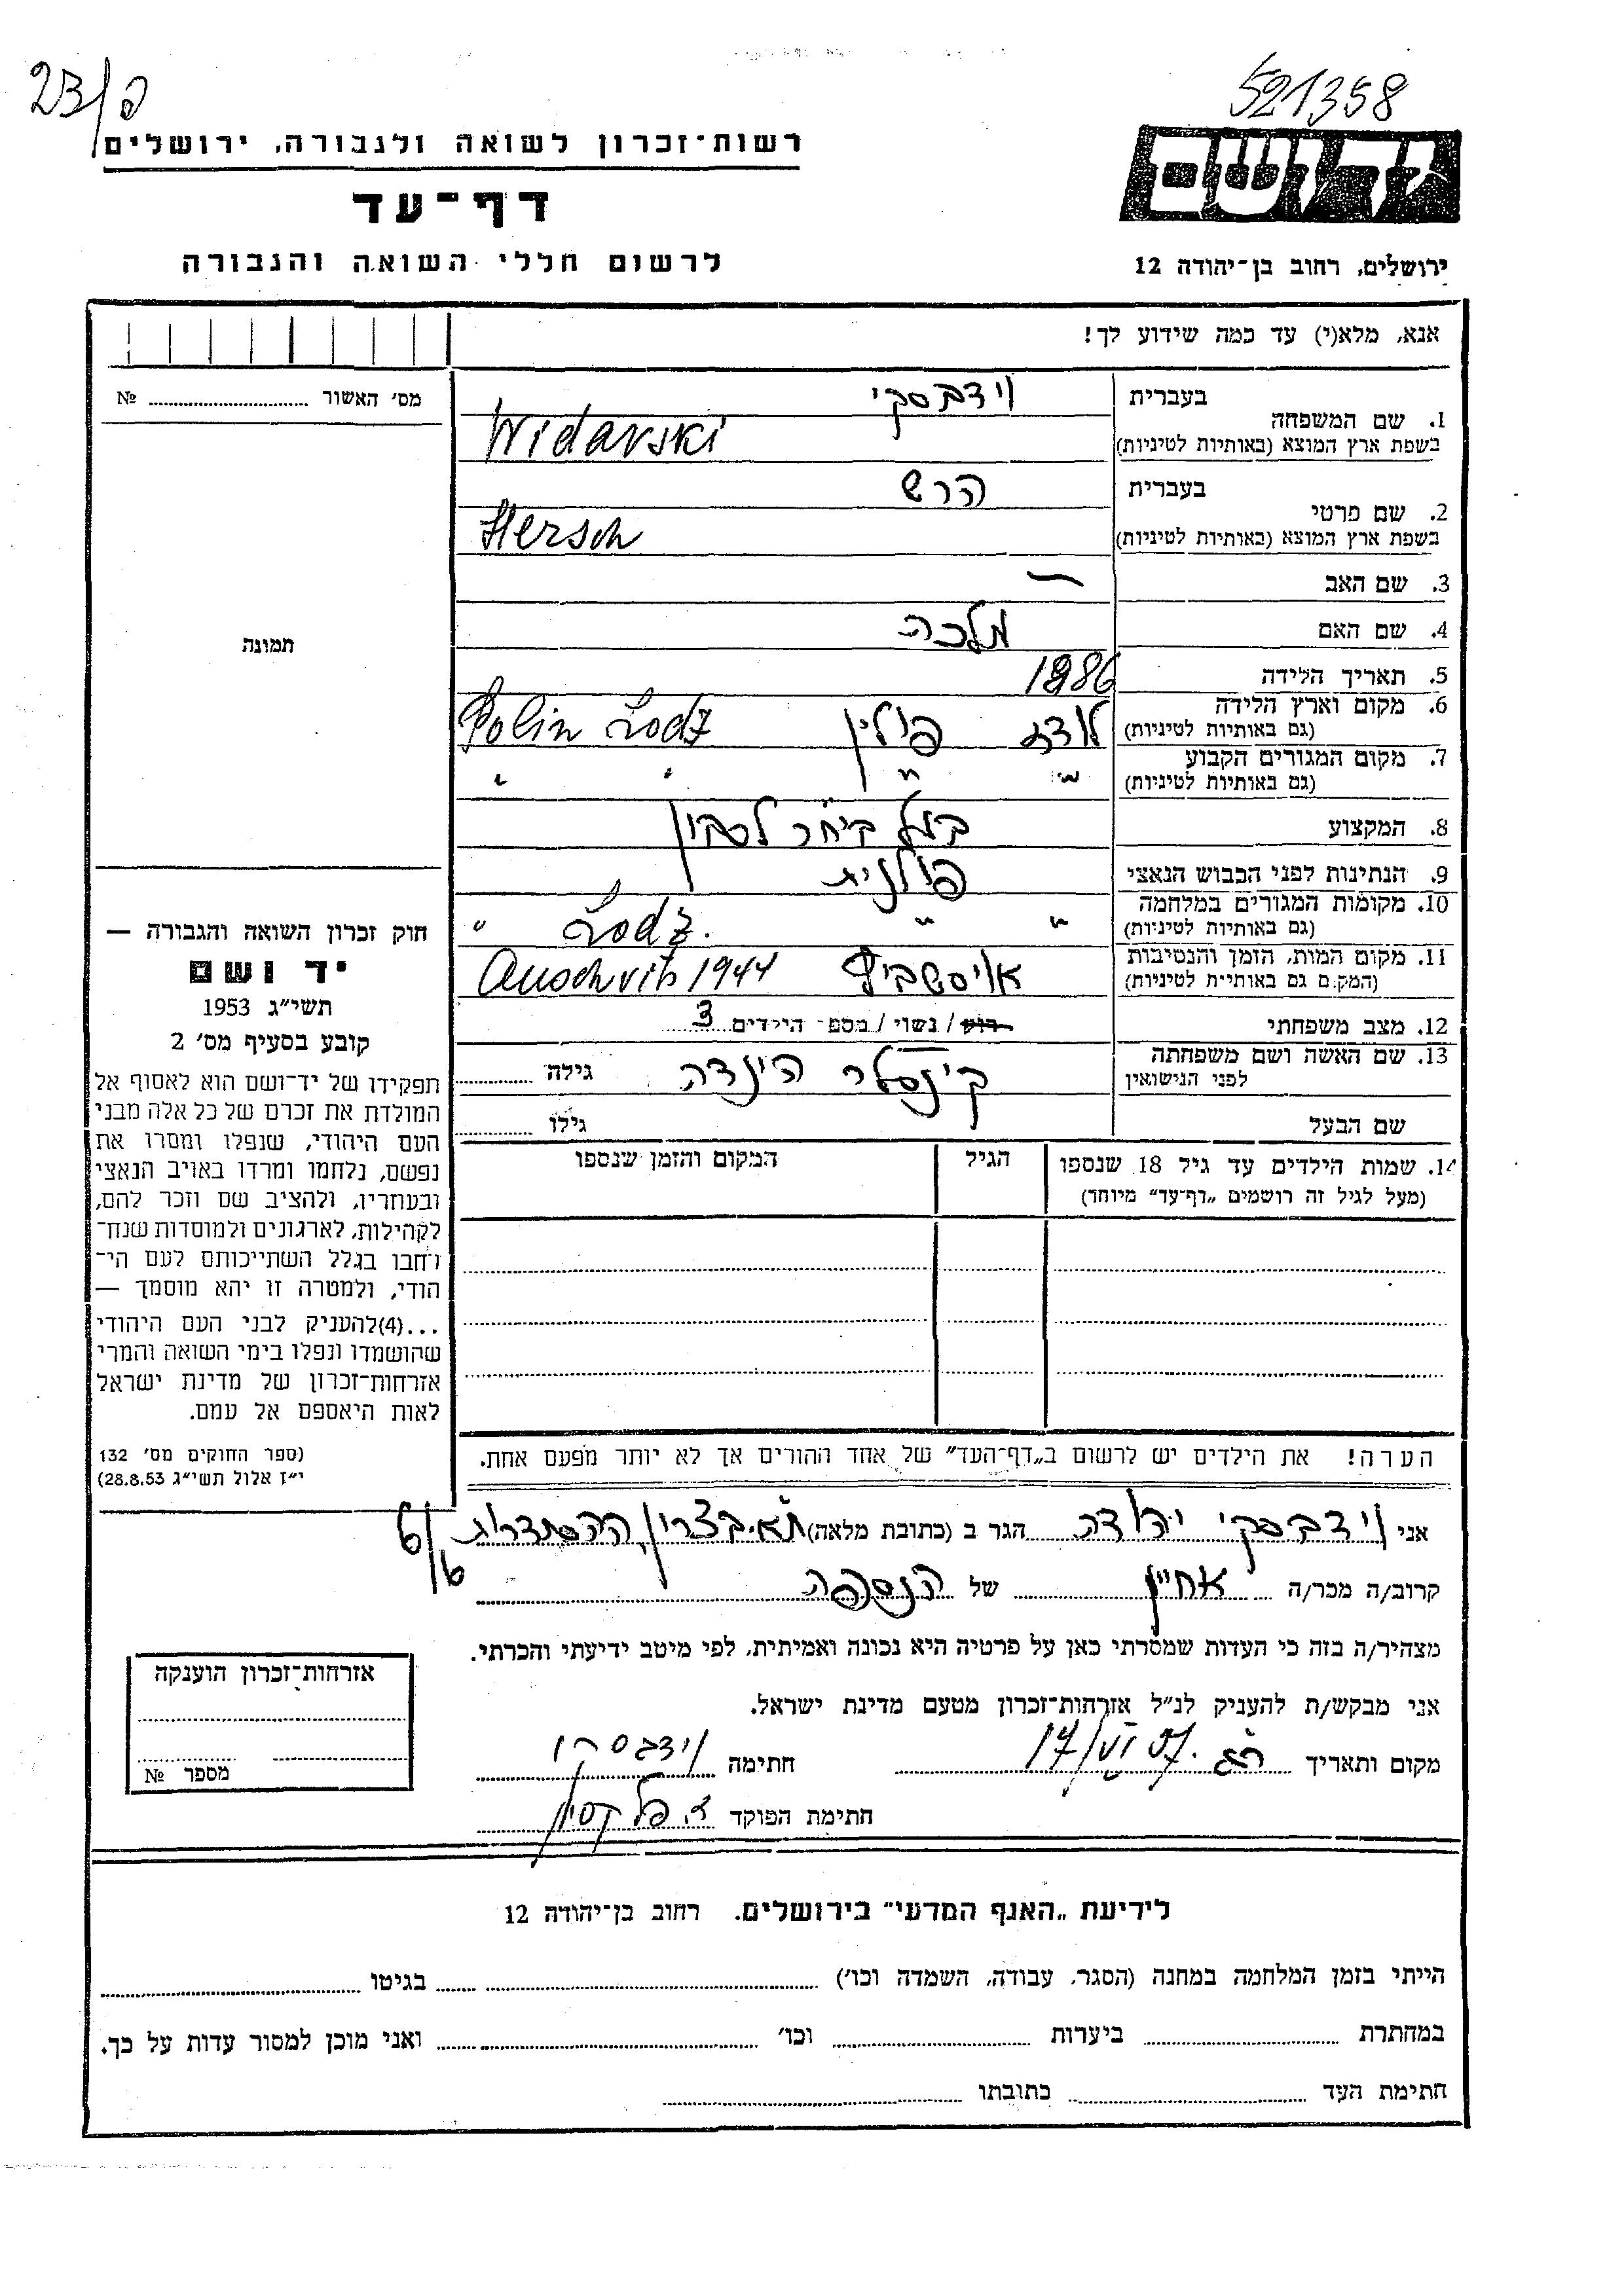 23/פ
521358
רשות־זכרון לשואה ולגבורה, ירושלים
יד ושם
דף־עד
לרשום חללי השואה והגבורה
ירושלים, רחוב בן־יהודה 12
אנא, מלא(י) עד כמה שידוע לך!
מס׳ האשור № 
1. שם המשפחה בעברית וידבסקי
בשפת ארץ המוצא (באותיות לטיניות) Widavski
2. שם פרטי בעברית הרש
בשפת ארץ המוצא (באותיות לטיניות) Hersch
3. שם האב —
4. שם האם מלכה
תמונה
5. תאריך הלידה 1886
6. מקום וארץ הלידה (גם באותיות לטיניות) לודז פולין Polin Lodz
7. מקום המגורים הקבוע (גם באותיות לטיניות) " " " "
8. המקצוע בעל ביח״ר לסבון
9. הנתינות לפני הכבוש הנאצי פולנית
10. מקומות המגורים במלחמה (גם באותיות לטיניות) " " Lodz. "
11. מקום המות, הזמן והנסיבות (המקום גם באותיות לטיניות) אוישביץ Auschvitz 1944
12. מצב משפחתי רוק / נשוי / מספר הילדים 3
13. שם האשה ושם משפחתה לפני הנישואין קינסלר הינדה גילה
שם הבעל גילו
14. שמות הילדים עד גיל 18 שנספו (מעל לגיל זה רושמים „דף־עד״ מיוחד) הגיל המקום והזמן שנספו
חוק זכרון השואה והגבורה —
יד ושם
תשי״ג 1953
קובע בסעיף מס׳ 2
תפקידו של יד־ושם הוא לאסוף אל
המולדת את זכרם של כל אלה מבני
העם היהודי, שנפלו ומסרו את
נפשם, נלחמו ומרדו באויב הנאצי
ובעוזריו, ולהציב שם וזכר להם,
לקהילות, לארגונים ולמוסדות שנח־
רבו בגלל השתייכותם לעם הי־
הודי, ולמטרה זו יהא מוסמך —
...(4)להעניק לבני העם היהודי
שהושמדו ונפלו בימי השואה והמרי
אזרחות־זכרון של מדינת ישראל
לאות היאספם אל עמם.
(ספר החוקים מס׳ 132
י״ז אלול תשי״ג 28.8.53)
הערה! את הילדים יש לרשום ב„דף־העד״ של אחד ההורים אך לא יותר מפעם אחת.
אני וידבסקי יהודה הגר ב (כתובת מלאה) ת״א. בצרון, ההסתדרות 6/6
קרוב/ה מכר/ה אחיין של הנספה
מצהיר/ה בזה כי העדות שמסרתי כאן על פרטיה היא נכונה ואמיתית, לפי מיטב ידיעתי והכרתי.
אני מבקש/ת להעניק לנ״ל אזרחות־זכרון מטעם מדינת ישראל.
מקום ותאריך 17/VI 57. חתימה וידבסקי
חתימת הפוקד
אזרחות־זכרון הוענקה
מספר №
לידיעת „האגף המדעי״ בירושלים. רחוב בן־יהודה 12
הייתי בזמן המלחמה במחנה (הסגר, עבודה, השמדה וכו׳) בגיטו
במחתרת ביערות וכו׳ ואני מוכן למסור עדות על כך.
חתימת העד כתובתו